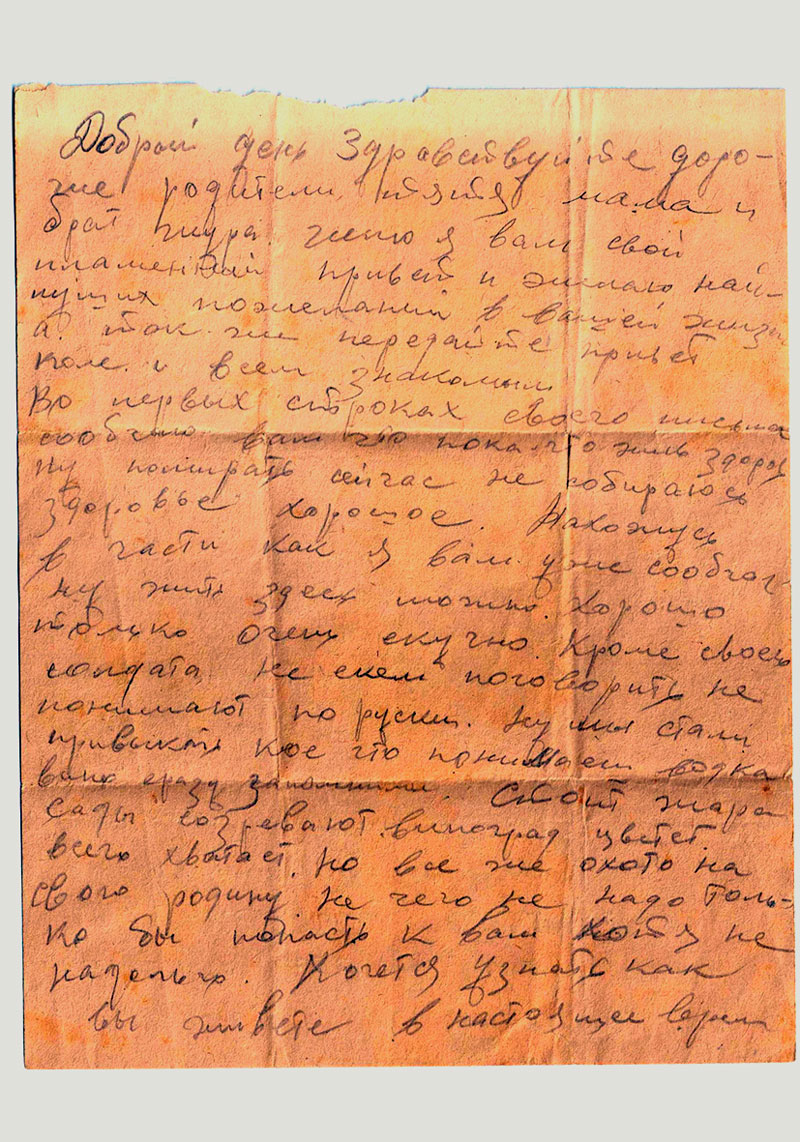 Добрый день Здравствуйте доро-
гие родители, тятя мама и
брат Шура. шлю я вам свой
пламенный привет и желаю най-
лучших пожеланий в вашей жизни
а. так же передайте привет
Коле. и всем знакомым
Во первых строках своего письма
сообчаю вам что пока-что жив здоров
ну помирать сейчас не собираюсь
здоровье хорошое. Нахожусь
в части как я вам уже сообчал
ну жить здесь можно. Хорошо
только очень скучно. Кроме своего
солдата не скем поговорить не
понимают по руски. ну мы стали
привыкать кое что понимаем водка
вино сразу запомнили. Стоит жара
сады созревают. виноград цветет.
всего хватает, но все же охото на
свою родину не чего не надо толь-
ко бы попасть к вам хотя не
надельго. Хочется узнать как
вы живете в настоящее время